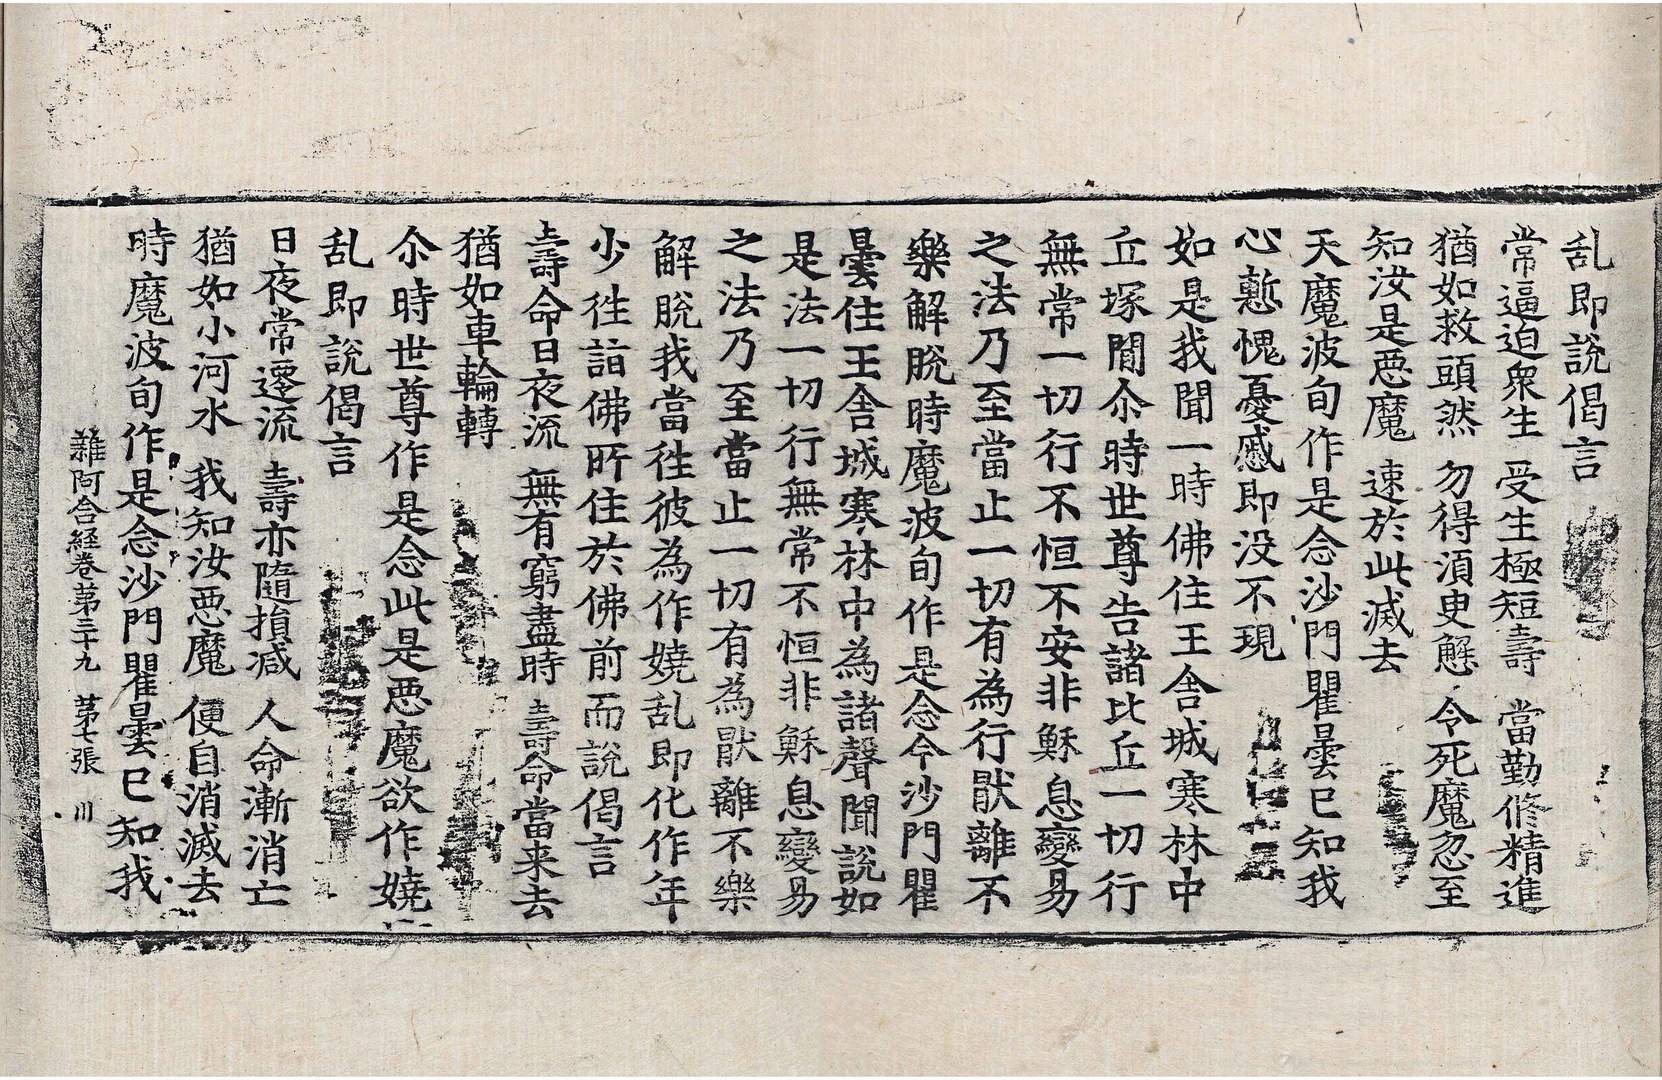 乱即說偈言
常逼迫衆生 受生極短壽 當勤修精進
猶如救頭然 勿得湏臾懈 令死魔忽至
知汝是惡魔 速於此滅去
天魔波旬作是念沙門瞿曇已知我
心慙愧憂慼即没不現
如是我聞一時佛住王舍城寒林中
丘塚間尒時世尊告諸比丘一切行
無常一切行不恒不安非穌息變易
之法乃至當止一切有為行猒離不
樂解脫時魔波旬作是念今沙門瞿
曇住王舍城寒林中為諸聲聞說如
是法一切行無常不恒非穌息變易
之法乃至當止一切有為猒離不樂
解脫我當徃彼為作嬈乱即化作年
少徃詣佛所住於佛前而說偈言
壽命日夜流 無有窮盡時 壽命當来去
猶如車輪轉
尒時世尊作是念此是惡魔欲作嬈
乱即說偈言
日夜常遷流 壽亦隨損減 人命漸消亡
猶如小河水 我知汝惡魔 便自消滅去
時魔波旬作是念沙門瞿曇已知我
雜阿含経卷第三十九 苐七張 川